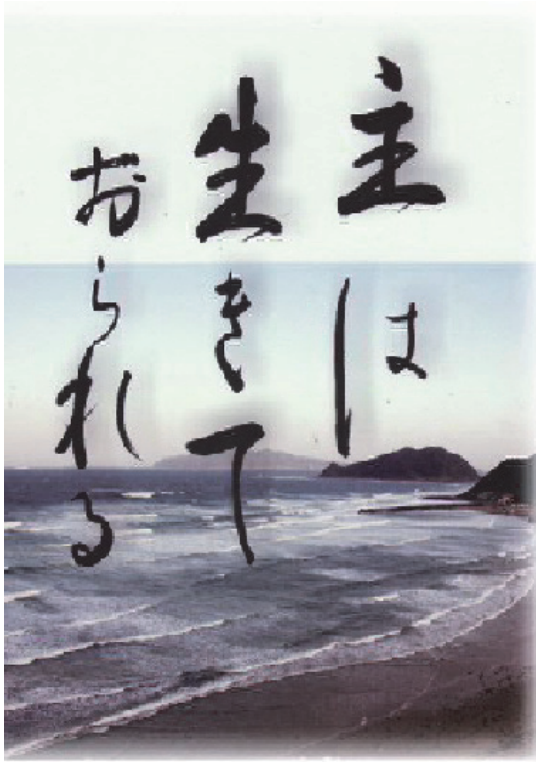 主は
生きて
おられる